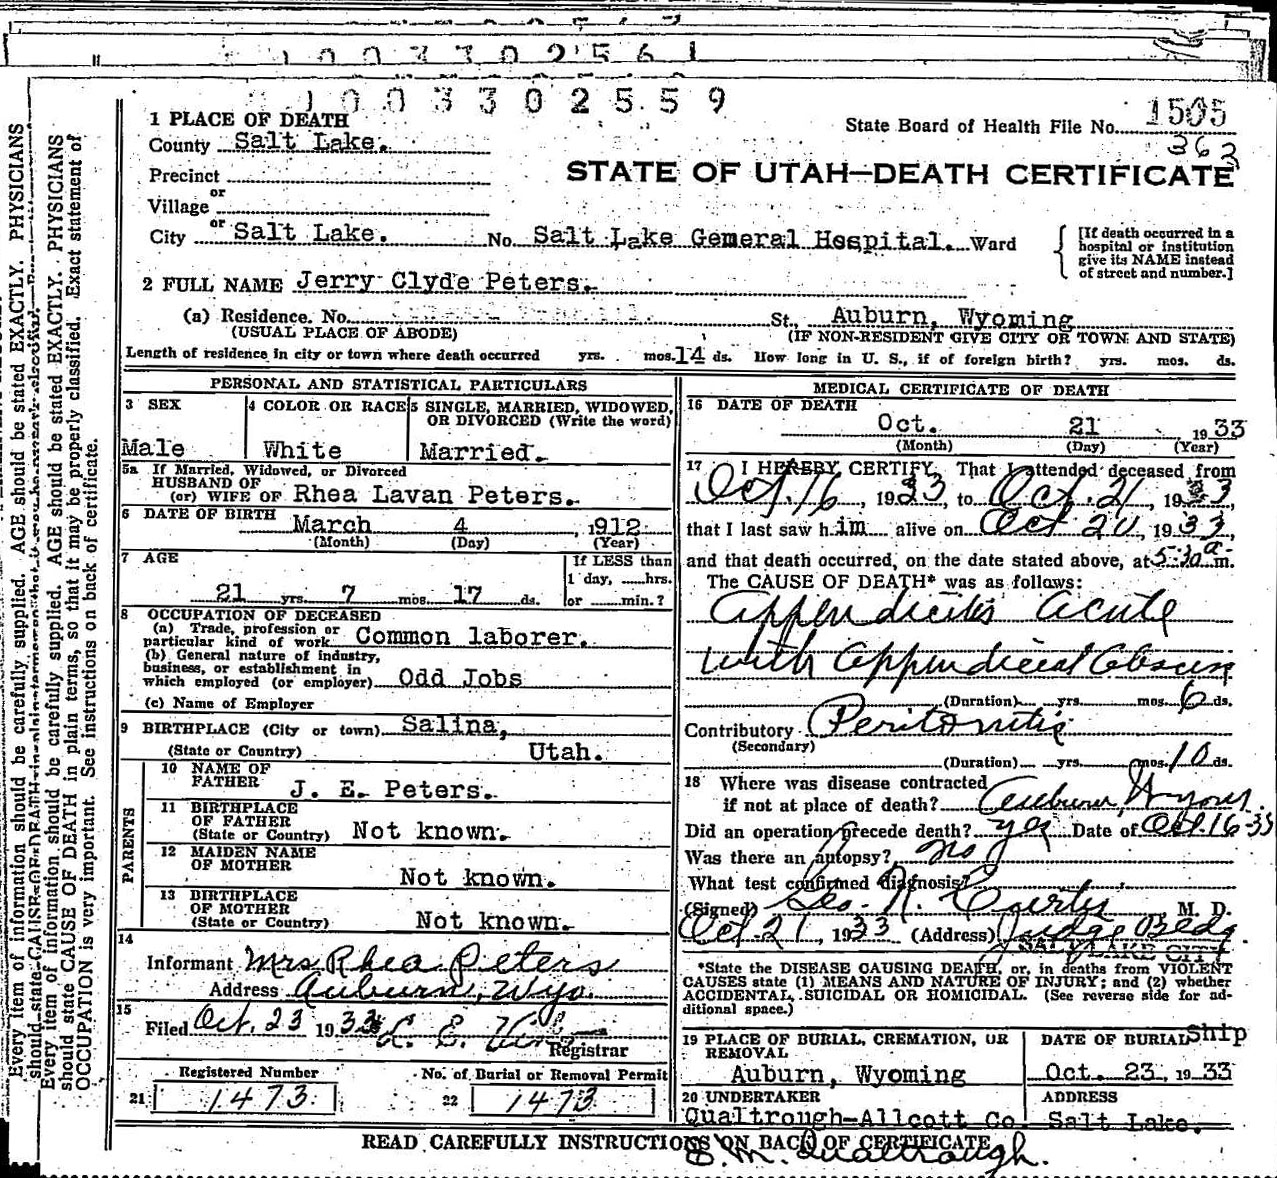 1003302561
1003302559
1 PLACE OF DEATH
County Salt Lake.
State Board of Health File No. 1505
363
Precinct
or
Village
STATE OF UTAH—DEATH CERTIFICATE
or
City Salt Lake. No. Salt Lake Gemeral Hospital. Ward
[If death occurred in a
hospital or institution
give its NAME instead
of street and number.]
2 FULL NAME Jerry Clyde Peters.
(a) Residence. No. St., Auburn, Wyoming
(USUAL PLACE OF ABODE) (IF NON-RESIDENT GIVE CITY OR TOWN AND STATE)
Length of residence in city or town where death occurred yrs. mos. 14 ds. How long in U. S., if of foreign birth? yrs. mos. ds.
PERSONAL AND STATISTICAL PARTICULARS
3 SEX
Male
4 COLOR OR RACE
White
5 SINGLE, MARRIED, WIDOWED,
OR DIVORCED (Write the word)
Married.
5a If Married, Widowed, or Divorced
HUSBAND OF
(or) WIFE OF Rhea Lavan Peters.
6 DATE OF BIRTH March 4 1912
(Month) (Day) (Year)
7 AGE
21 yrs. 7 mos. 17 ds.
If LESS than
1 day, hrs.
or min.?
8 OCCUPATION OF DECEASED
(a) Trade, profession or
particular kind of work Common laborer.
(b) General nature of industry,
business, or establishment in
which employed (or employer) Odd Jobs
(c) Name of Employer
9 BIRTHPLACE (City or town) Salina,
(State or Country) Utah.
PARENTS
10 NAME OF
FATHER J. E. Peters.
11 BIRTHPLACE
OF FATHER
(State or Country) Not known.
12 MAIDEN NAME
OF MOTHER
Not known.
13 BIRTHPLACE
OF MOTHER
(State or Country) Not known.
14
Informant Mrs Rhea Peters
Address Auburn, Wyo.
15
Filed Oct. 23 1933
Registrar
Registered Number
21 1473
No. of Burial or Removal Permit
22 1473
MEDICAL CERTIFICATE OF DEATH
16 DATE OF DEATH
Oct. 21 1933
(Month) (Day) (Year)
17 I HEREBY CERTIFY, That I attended deceased from
Oct. 16, 1933, to Oct. 21, 1933,
that I last saw him alive on Oct 20, 1933,
and that death occurred, on the date stated above, at 5:30 a. m.
The CAUSE OF DEATH* was as follows:
Appendicitis acute
with appendiceal abscess
(Duration) yrs. mos. 6 ds.
Contributory Peritonitis
(Secondary)
(Duration) yrs. mos. 10 ds.
18 Where was disease contracted
if not at place of death? Auburn Wyom.
Did an operation precede death? yes Date of Oct. 16-33
Was there an autopsy? no
What test confirmed diagnosis?
(Signed) Geo. N. Curtis, M. D.
Oct 21, 1933 (Address) Judge Bldg.
SALT LAKE CITY
*State the DISEASE CAUSING DEATH, or, in deaths from VIOLENT
CAUSES state (1) MEANS AND NATURE OF INJURY; and (2) whether
ACCIDENTAL, SUICIDAL OR HOMICIDAL. (See reverse side for ad-
ditional space.)
19 PLACE OF BURIAL, CREMATION, OR
REMOVAL
Auburn, Wyoming
DATE OF BURIAL Ship
Oct. 23, 1933
20 UNDERTAKER
Qualtrough-Allcott Co.
ADDRESS
Salt Lake.
READ CAREFULLY INSTRUCTIONS ON BACK OF CERTIFICATE
S. M. Qualtrough.
Every item of information should be carefully supplied. AGE should be stated EXACTLY. PHYSICIANS
Every item of information should be carefully supplied. AGE should be stated EXACTLY. PHYSICIANS
should state CAUSE OF DEATH in plain terms, so that it may be properly classified. Exact statement of
OCCUPATION is very important. See instructions on back of certificate.